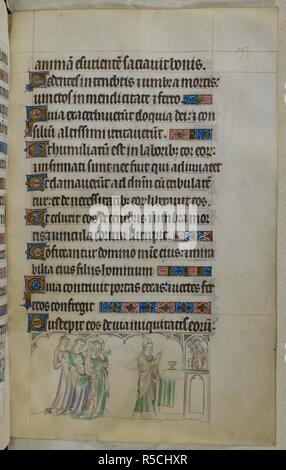 animam esurientem saciavit bonis.
Sedentes in tenebris ⁊ umbra mortis:
vinctos in mendicitate ⁊ ferro.
Quia exacerbaverunt eloquia dei: ⁊ con
silium altissimi irritaverunt.
Et humiliatum est in laborib; cor eor:
infirmati sunt nec fuit qui adiuvaret
Et clamaverunt ad dnm cu tribularē
tur: et de necessitatib; eor liberavit eos.
Et eduxit eos de tenebris ⁊ umbra mor
tis: ⁊ vincula eorum dirupit.
Confiteantur domino misericordie eius: ⁊ mira
bilia eius filiis hominum
Quia contrivit portas ereas: ⁊ vectes fer
reos confregit
Suscepit eos de via iniquitatis eorum:
alamy
www.alamy.com - R5CHXR